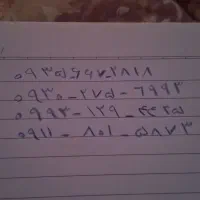 ۰۹۳۵-۶۶۷-۲۸۱۸
۰۹۳۰-۲۷۵-۶۹۹۳
۰۹۹۳-۱۲۹-۴۴۲۵
۰۹۱۱-۸۰۱-۵۸۷۳